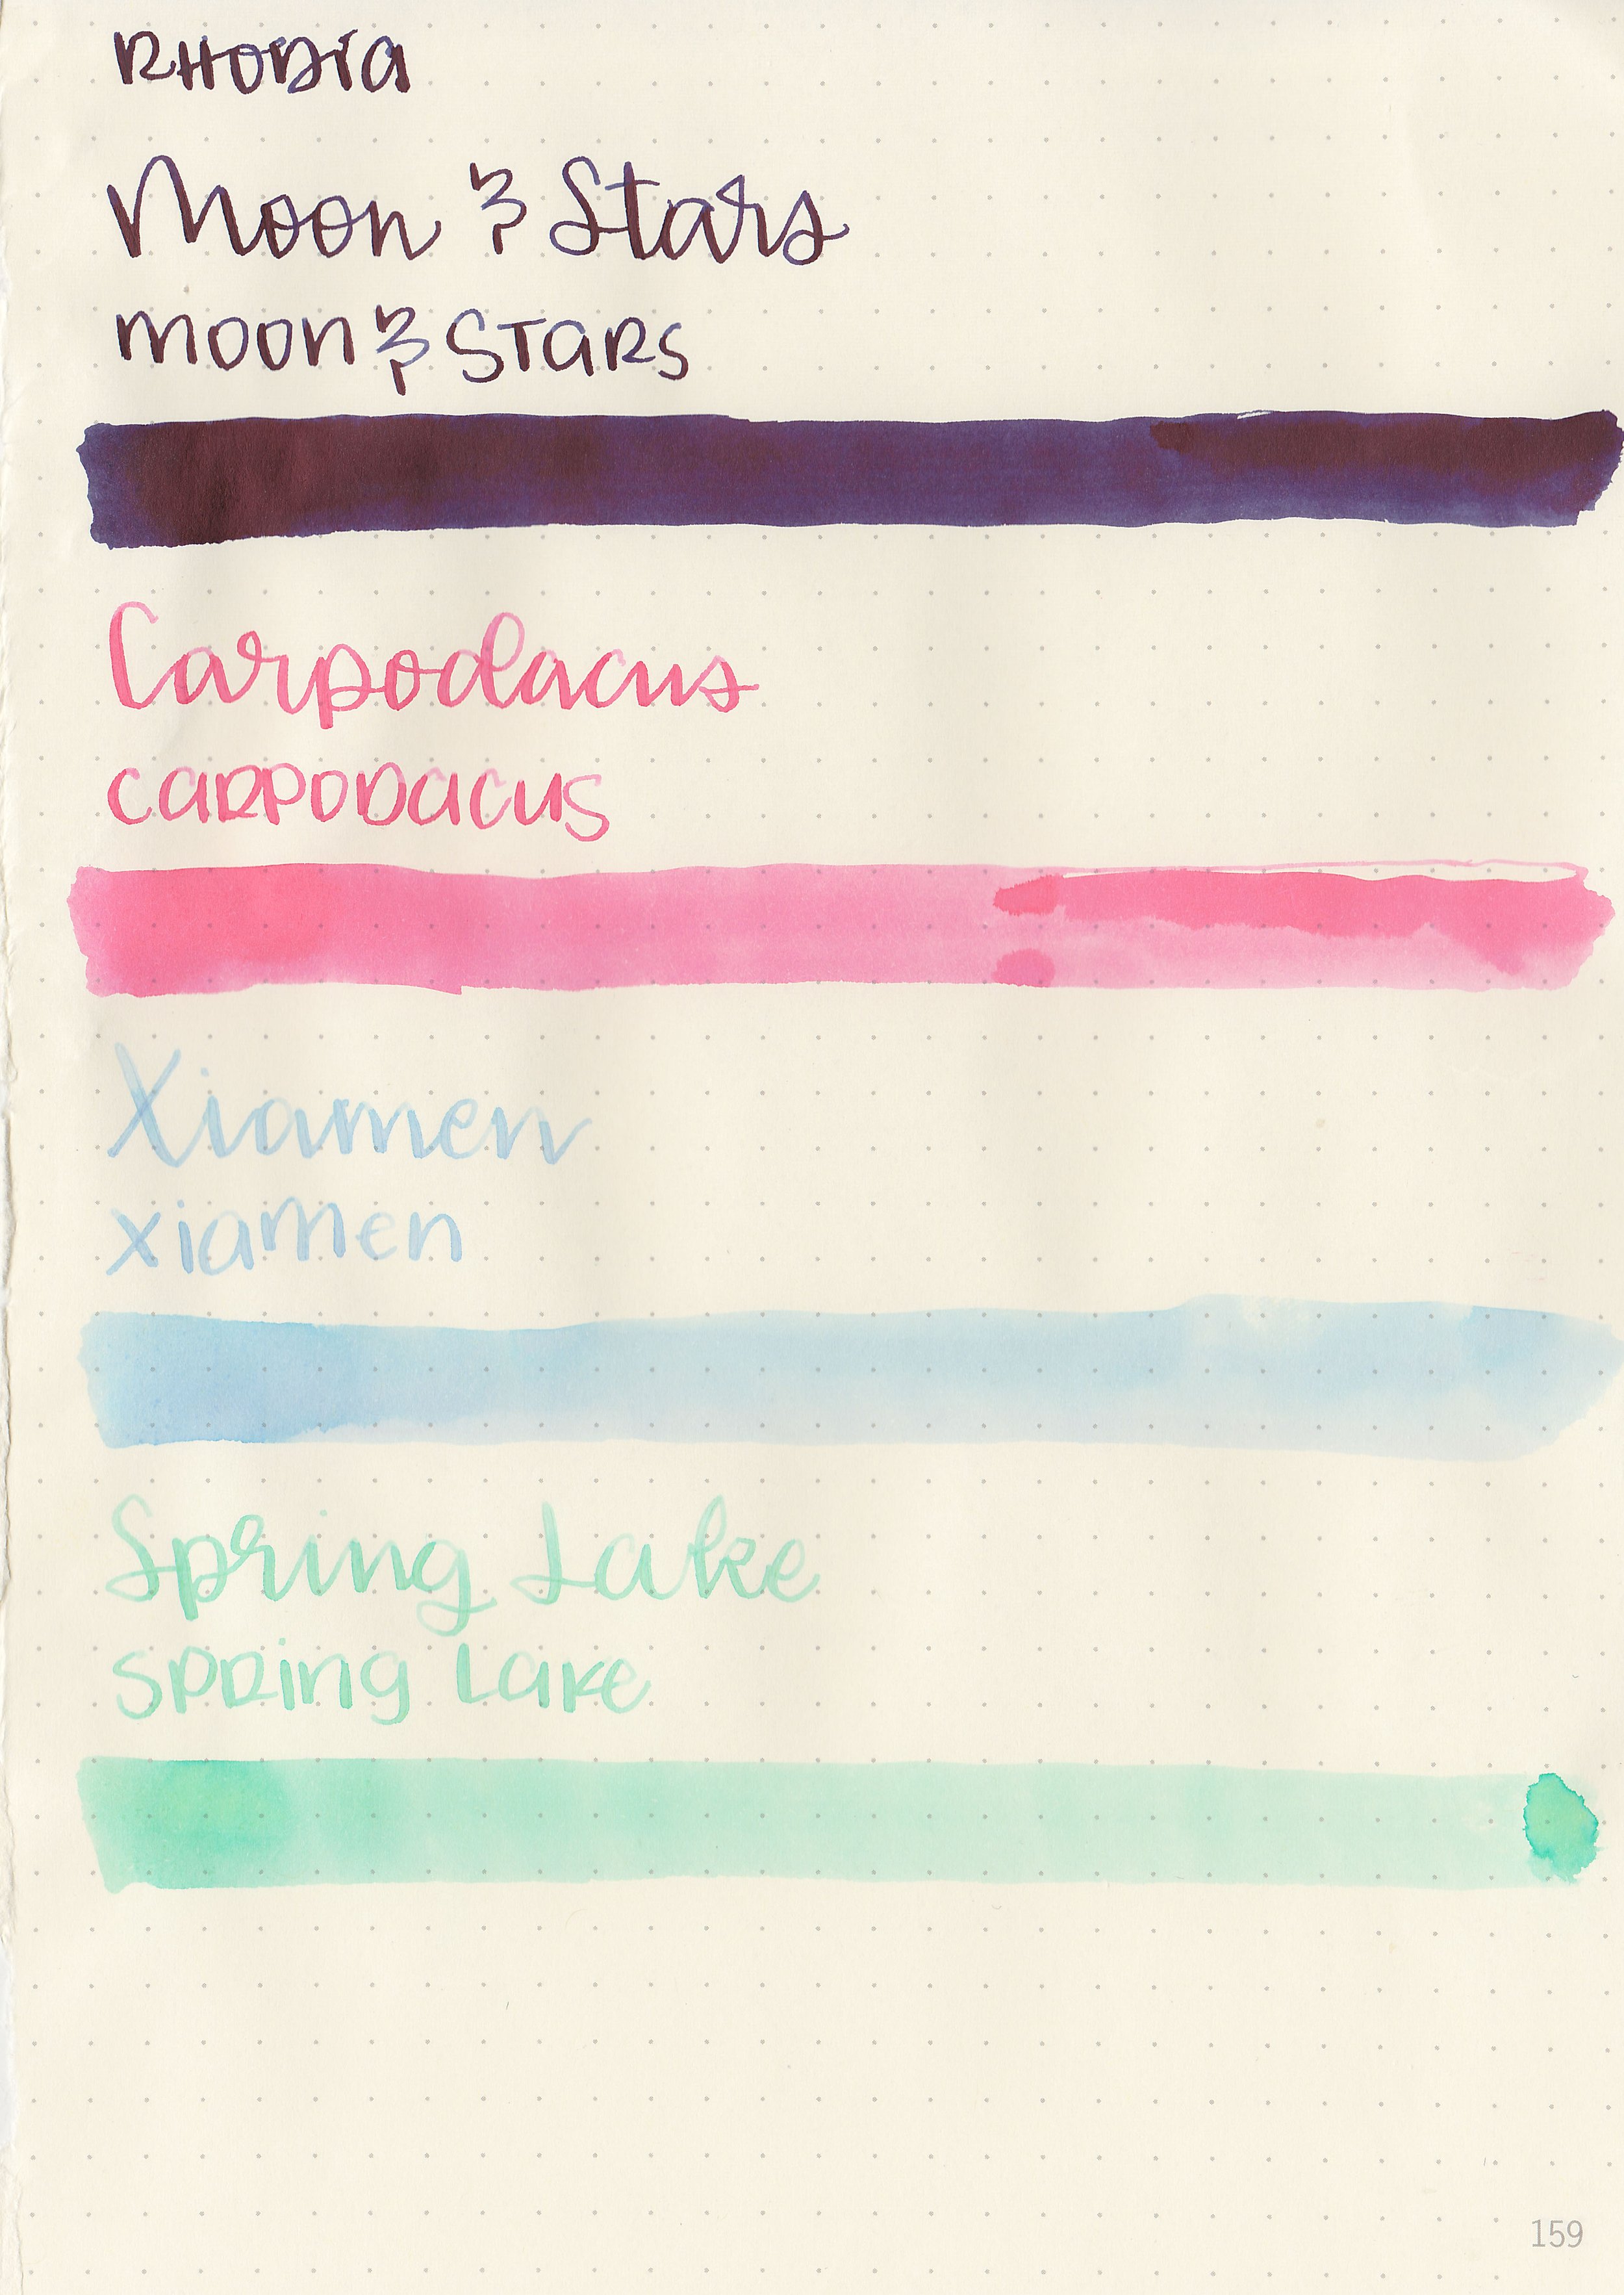 RHODIA
Moon & Stars
moon & STARS
Carpodacus
CARPODACUS
Xiamen
xiamen
Spring Lake
SPRING LAKE
159